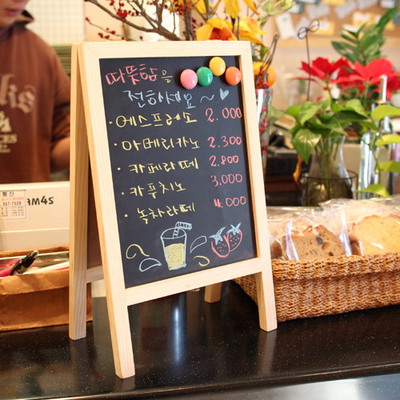 따뜻함을
전하세요~
· 에스프레소 2.000
· 아메리카노 2.300
· 카페라떼 2.800
· 카푸치노 3.000
· 녹차라떼 4.000
am4s